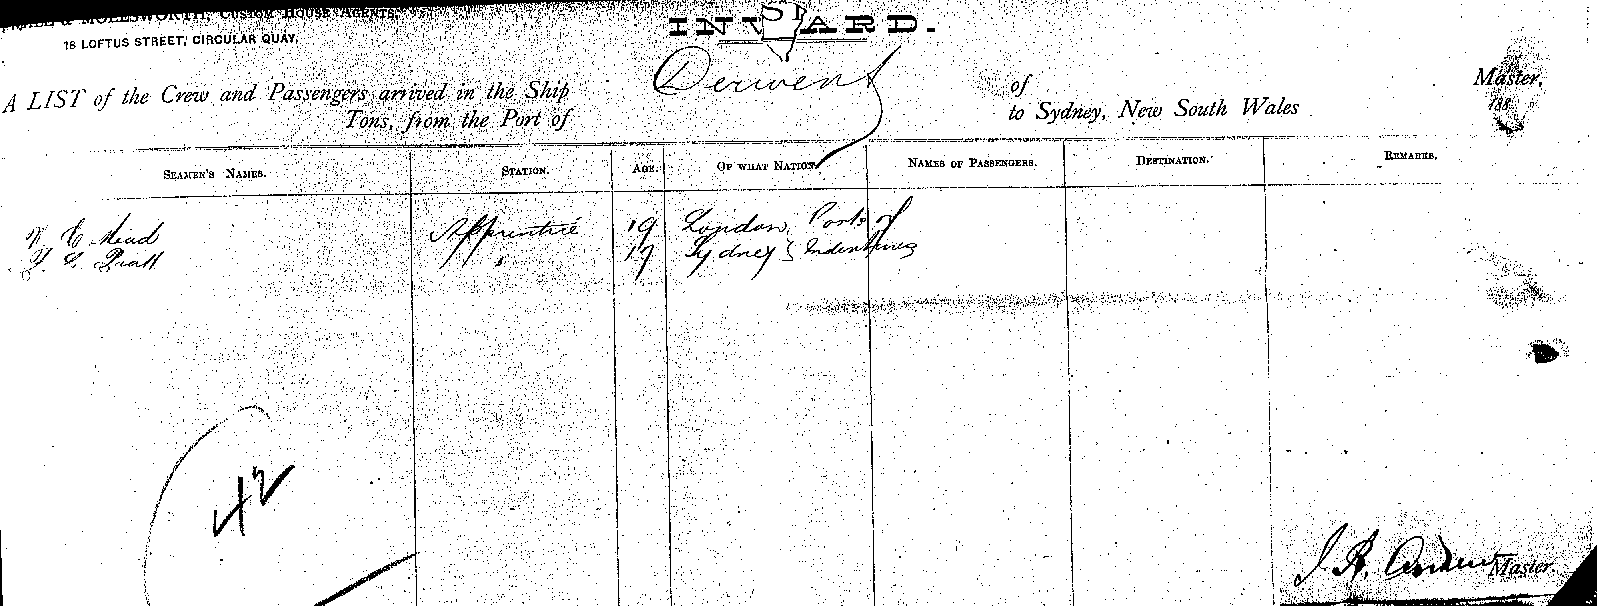 & MOLESWORTH, CUSTOM HOUSE AGENTS,
18 LOFTUS STREET, CIRCULAR QUAY.
INWARD.
A LIST of the Crew and Passengers arrived in the Ship Derwent of Master,
Tons, from the Port of to Sydney, New South Wales 188
SEAMEN'S NAMES. STATION. AGE. OF WHAT NATION. NAMES OF PASSENGERS. DESTINATION. REMARKS.
W C Mead Apprentice 19 London Ports of
Pratt " 17 Sydney } Indentures
42
J. R. Master.